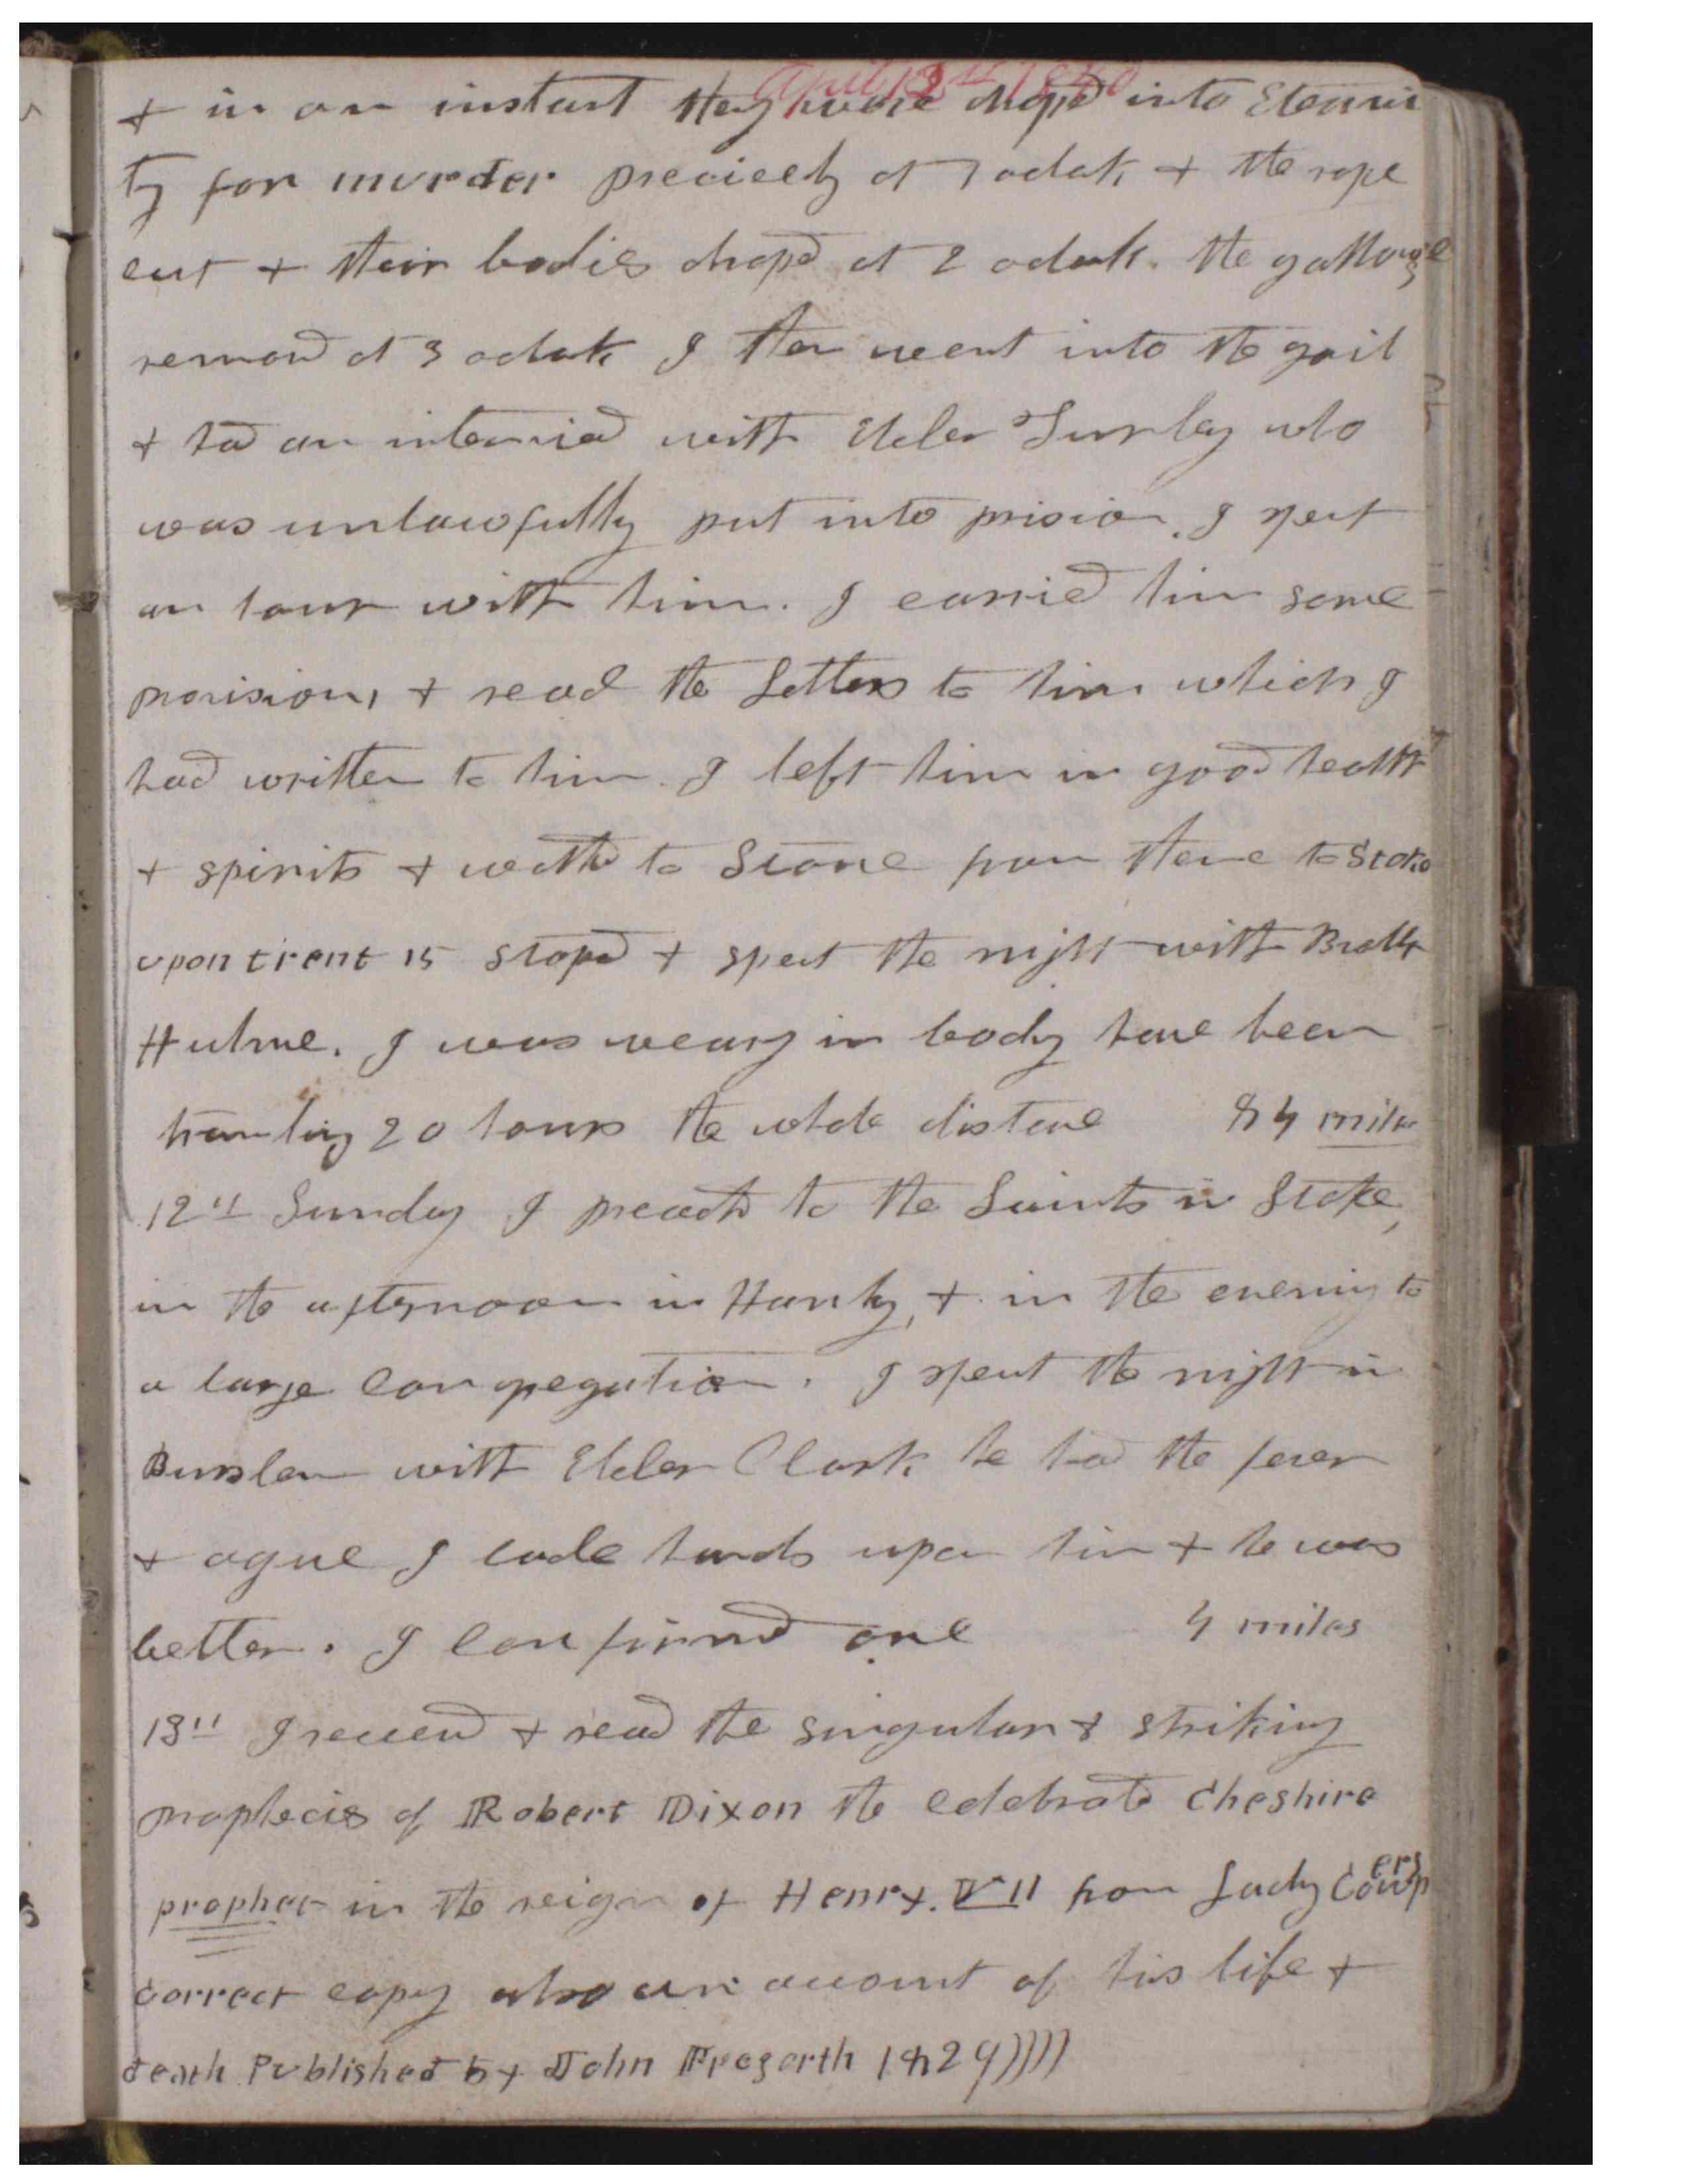 April 13th 1840
+ in an instant they were dropd into Eterni
ty for murder precicely at 1 oclok, + the rope
cut + their bodies dropd at 2 oclok. the gallows
removd at 3 oclok I then went into the gail
+ had an intervied with Elder Turley who
was unlawfully put into prision. I spent
an hour with him. I carried him some
provisions, + read the Letters to him which I
had written to him. I left him in good health
+ spirits + walkd to Stone from there to Stoke
upon trent 15 stopd + spent the night with Broth
Hulme. I was weary in body have been
traveling 20 hours the whole distance 84 miles
12th Sunday I preachd to the Saints in Stoke,
in the afternoon in Hanly, + in the evening to
a large congregation. I spent the night in
Burslem with Elder Clark he had the fever
+ ague I laide hands upon him + he was
better. I confirmd one 4 miles
13th I recievd + read the singular & striking
prophecies of Robert Dixon the celebrated Cheshire
prophet in the reign of Henry. VII from Lady Cowpers
correct copy also an account of his life +
death Published by John Fregorth 1829))))